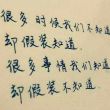 很多时候我们不知道
却假装知道
很多事情我们知道
却假装不知道